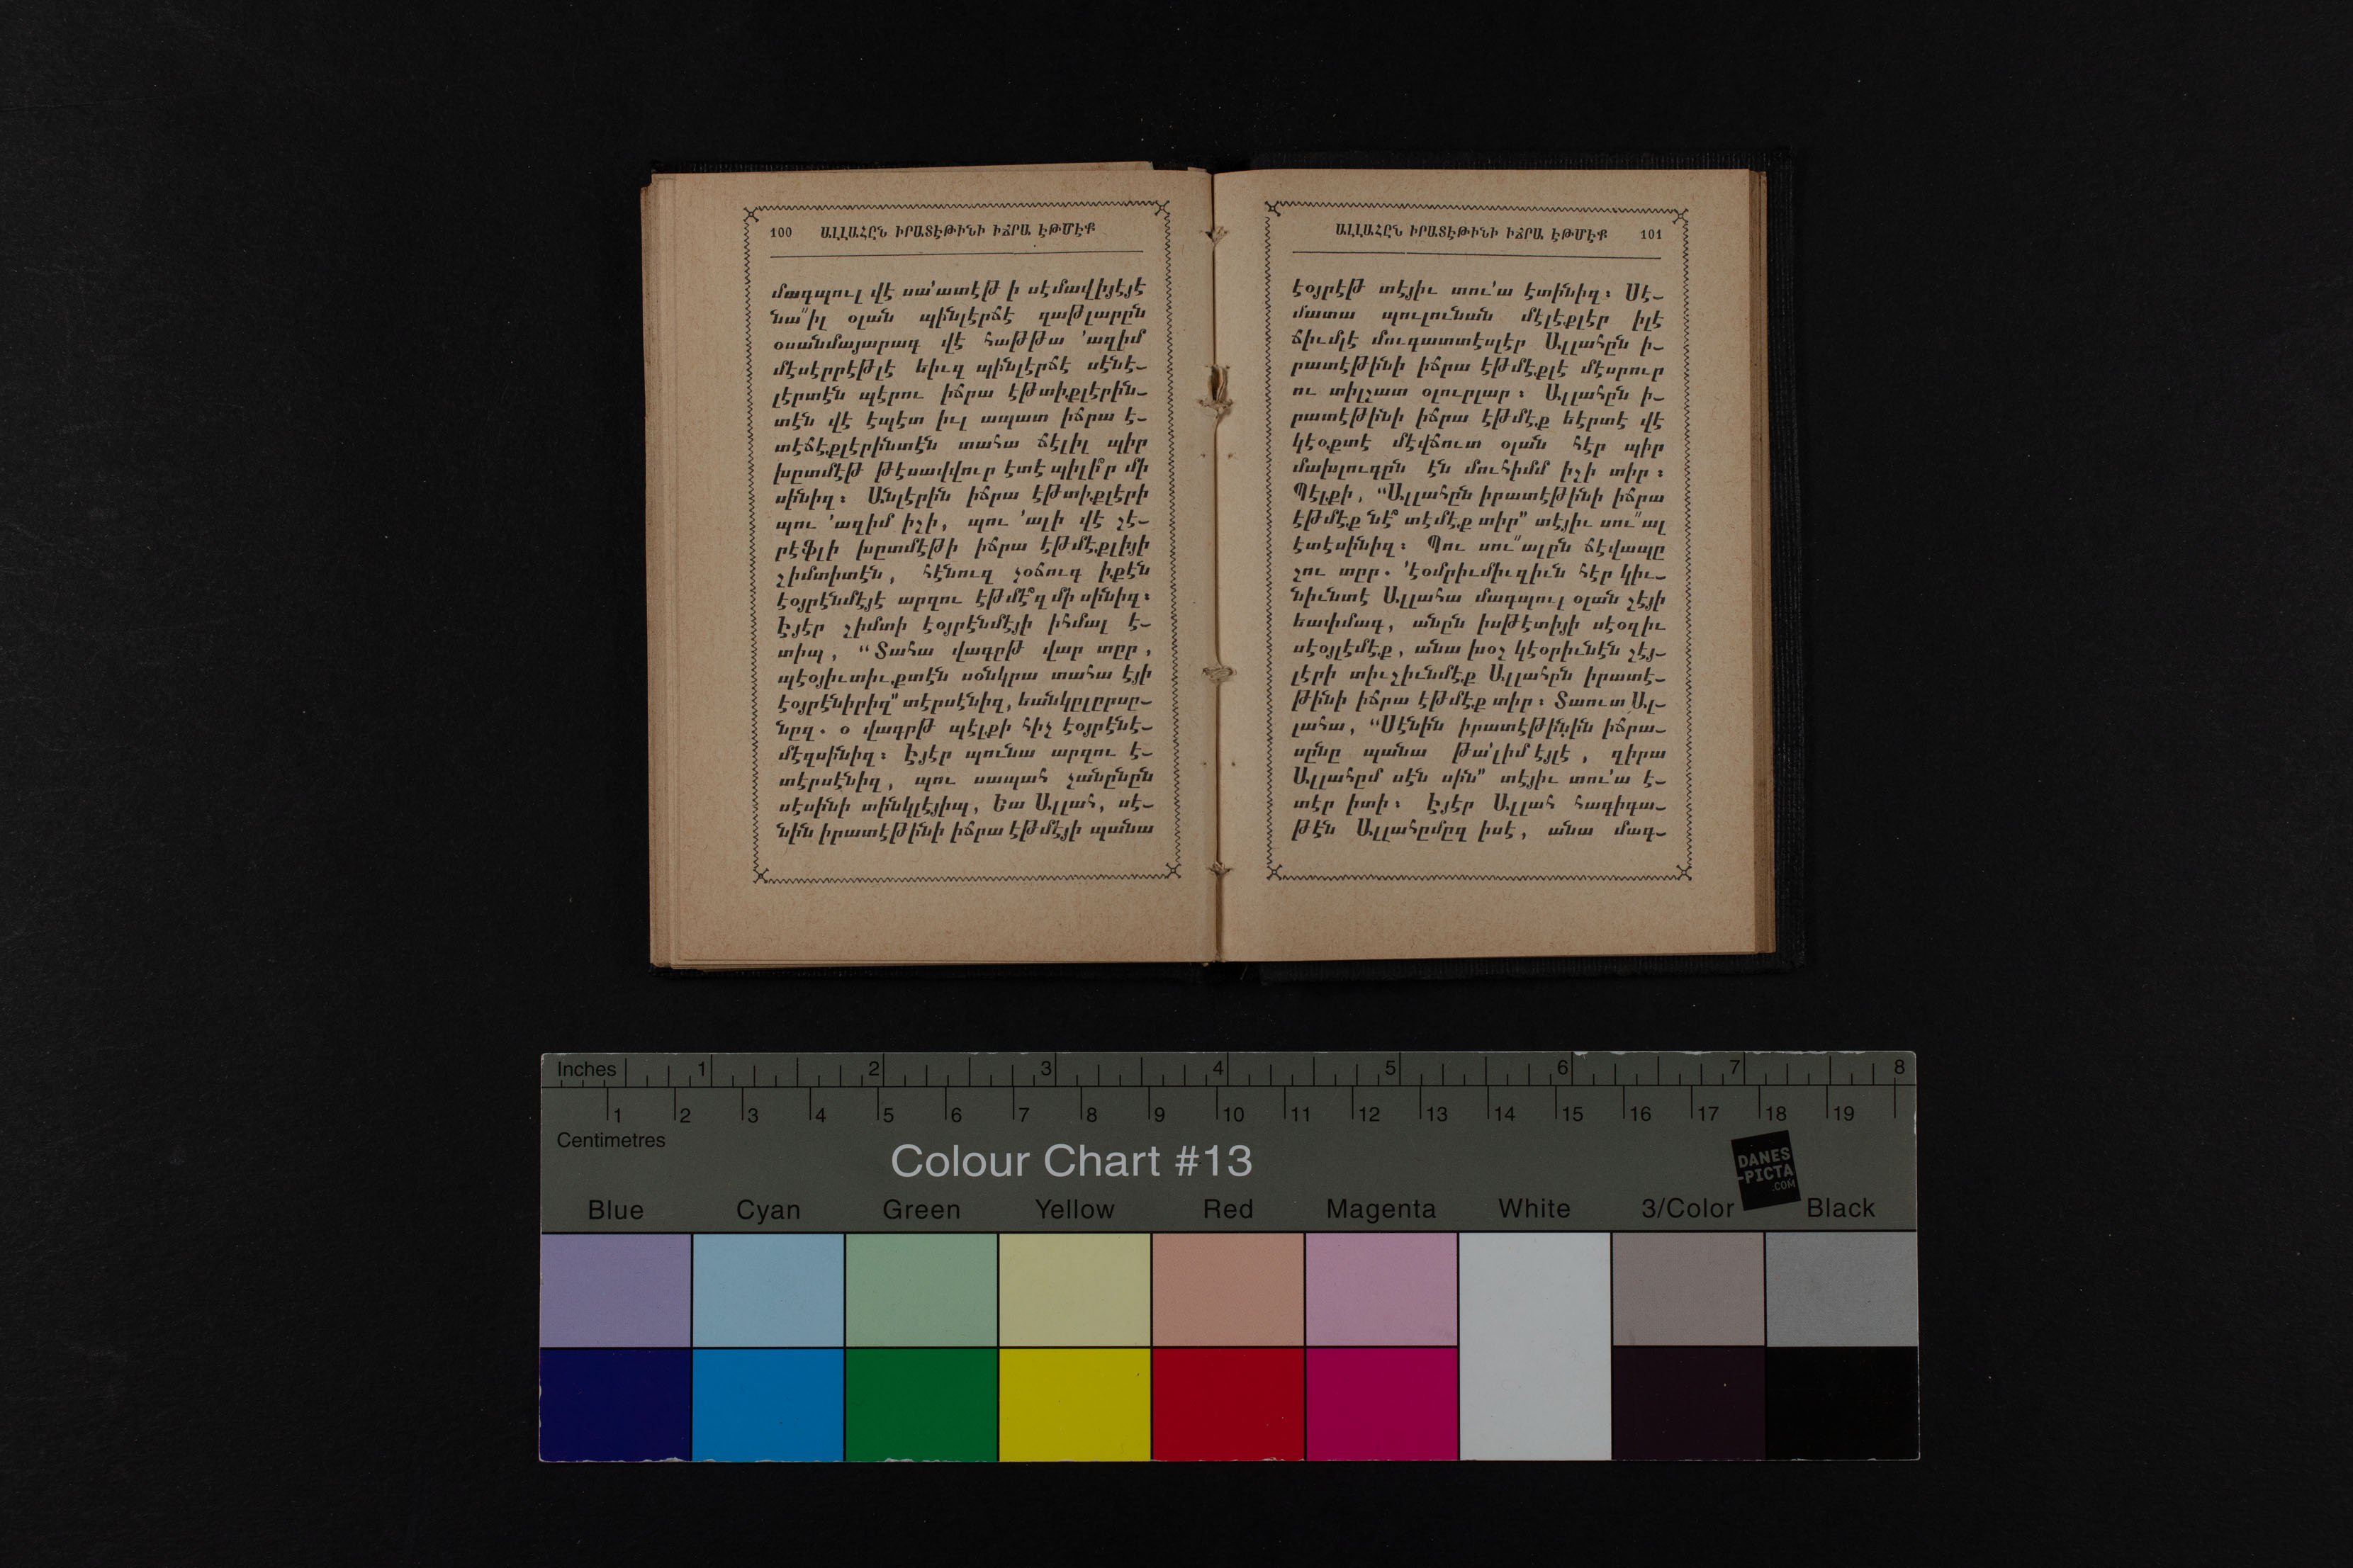 100 ԱԼԼԱՀԸՆ ԻՐԱՏԷԹԻՆԻ ԻՃՐԱ ԷԹՄԷՔ
մագպուլ վէ սա՛ատէթ ի սէմավիյէյէ
նա՞իլ օլան պինլէրճէ զաթլարըն
օսանմայարագ վէ հաթթա ՛ազիմ
մէսէրրէթլէ եիւզ պինլէրճէ սէնէ֊
լէրտէն պէրու իճրա էթտիքլէրին֊
տէն վէ էպէտ իւլ ապատ իճրա է֊
տէճէքլէրինտէն տահա ճէլիլ պիր
խըտմէթ թէսավվուր էտէ պիլի՞ր մի
սինիզ։ Անլէրին իճրա էթտիքլէրի
պու ՛ազիմ իշի, պու ՛ալի վէ շէ֊
րէֆլի խըտմէթի իճրա էթմէքլիյի
շիմտիտէն, հէնուզ չօճուգ իքէն
էօյրէնմէյէ արզու էթմէ՞զ մի սինիզ։
Էյէր շիմտի էօյրէնմէյի իհմալ է֊
տիպ, “Տահա վագըթ վար տըր,
պէօյիւտիւքտէն սօնկրա տահա էյի
էօյրէնիրիզ” տէրսէնիզ, եանկըլըրսը֊
նըզ. օ վագըթ պէլքի հիչ էօյրէնէ֊
մէզսինիզ։ Էյէր պունա արզու է֊
տէրսէնիզ, պու սապահ չանընըն
սէսինի տինկլէյիպ, Եա Ալլահ, սէ֊
նին իրատէթինի իճրա էթմէյի պանա
ԱԼԼԱՀԸՆ ԻՐԱՏԷԹԻՆԻ ԻՃՐԱ ԷԹՄԷՔ 101
էօյրէթ տէյիւ տու՛ա էտինիզ։ Սէ֊
մատա պուլունան մէլէքլէր իլէ
ճիւմլէ մուգատտէսլէր Ալլահըն ի֊
րատէթինի իճրա էթմէքլէ մէսրուր
ու տիլշատ օլուրլար։ Ալլահըն ի֊
րատէթինի իճրա էթմէք եէրտէ վէ
կէօքտէ մէվճուտ օլան հէր պիր
մախլուգըն էն մուհիմմ իշի տիր։
Պէլքի, “Ալլահըն իրատէթինի իճրա
էթմէք նէ՞ տէմէք տիր” տէյիւ սու՞ալ
էտէսինիզ։ Պու սու՞ալըն ճէվապը
շու տըր. ՛էօմրիւմիւզիւն հէր կիւ֊
նիւնտէ Ալլահա մագպուլ օլան շէյի
եափմագ, անըն իսթէտիյի սէօզիւ
սէօյլէմէք, անա խօշ կէօրիւնէն շէյ֊
լէրի տիւշիւնմէք Ալլահըն իրատէ֊
թինի իճրա էթմէք տիր։ Տաուտ Ալ֊
լահա, “Սէնին իրատէթինին իճրա֊
սընը պանա թա՛լիմ էյլէ, զիրա
Ալլահըմ սէն սին” տէյիւ տու՛ա է֊
տէր իտի։ Էյէր Ալլահ հագիգա֊
թէն Ալլահըմըզ իսէ, անա մագ֊
Inches 1 2 3 4 5 6 7 8
1 2 3 4 5 6 7 8 9 10 11 12 13 14 15 16 17 18 19
Centimetres
Colour Chart #13
DANES
-PICTA
.COM
Blue Cyan Green Yellow Red Magenta White 3/Color Black